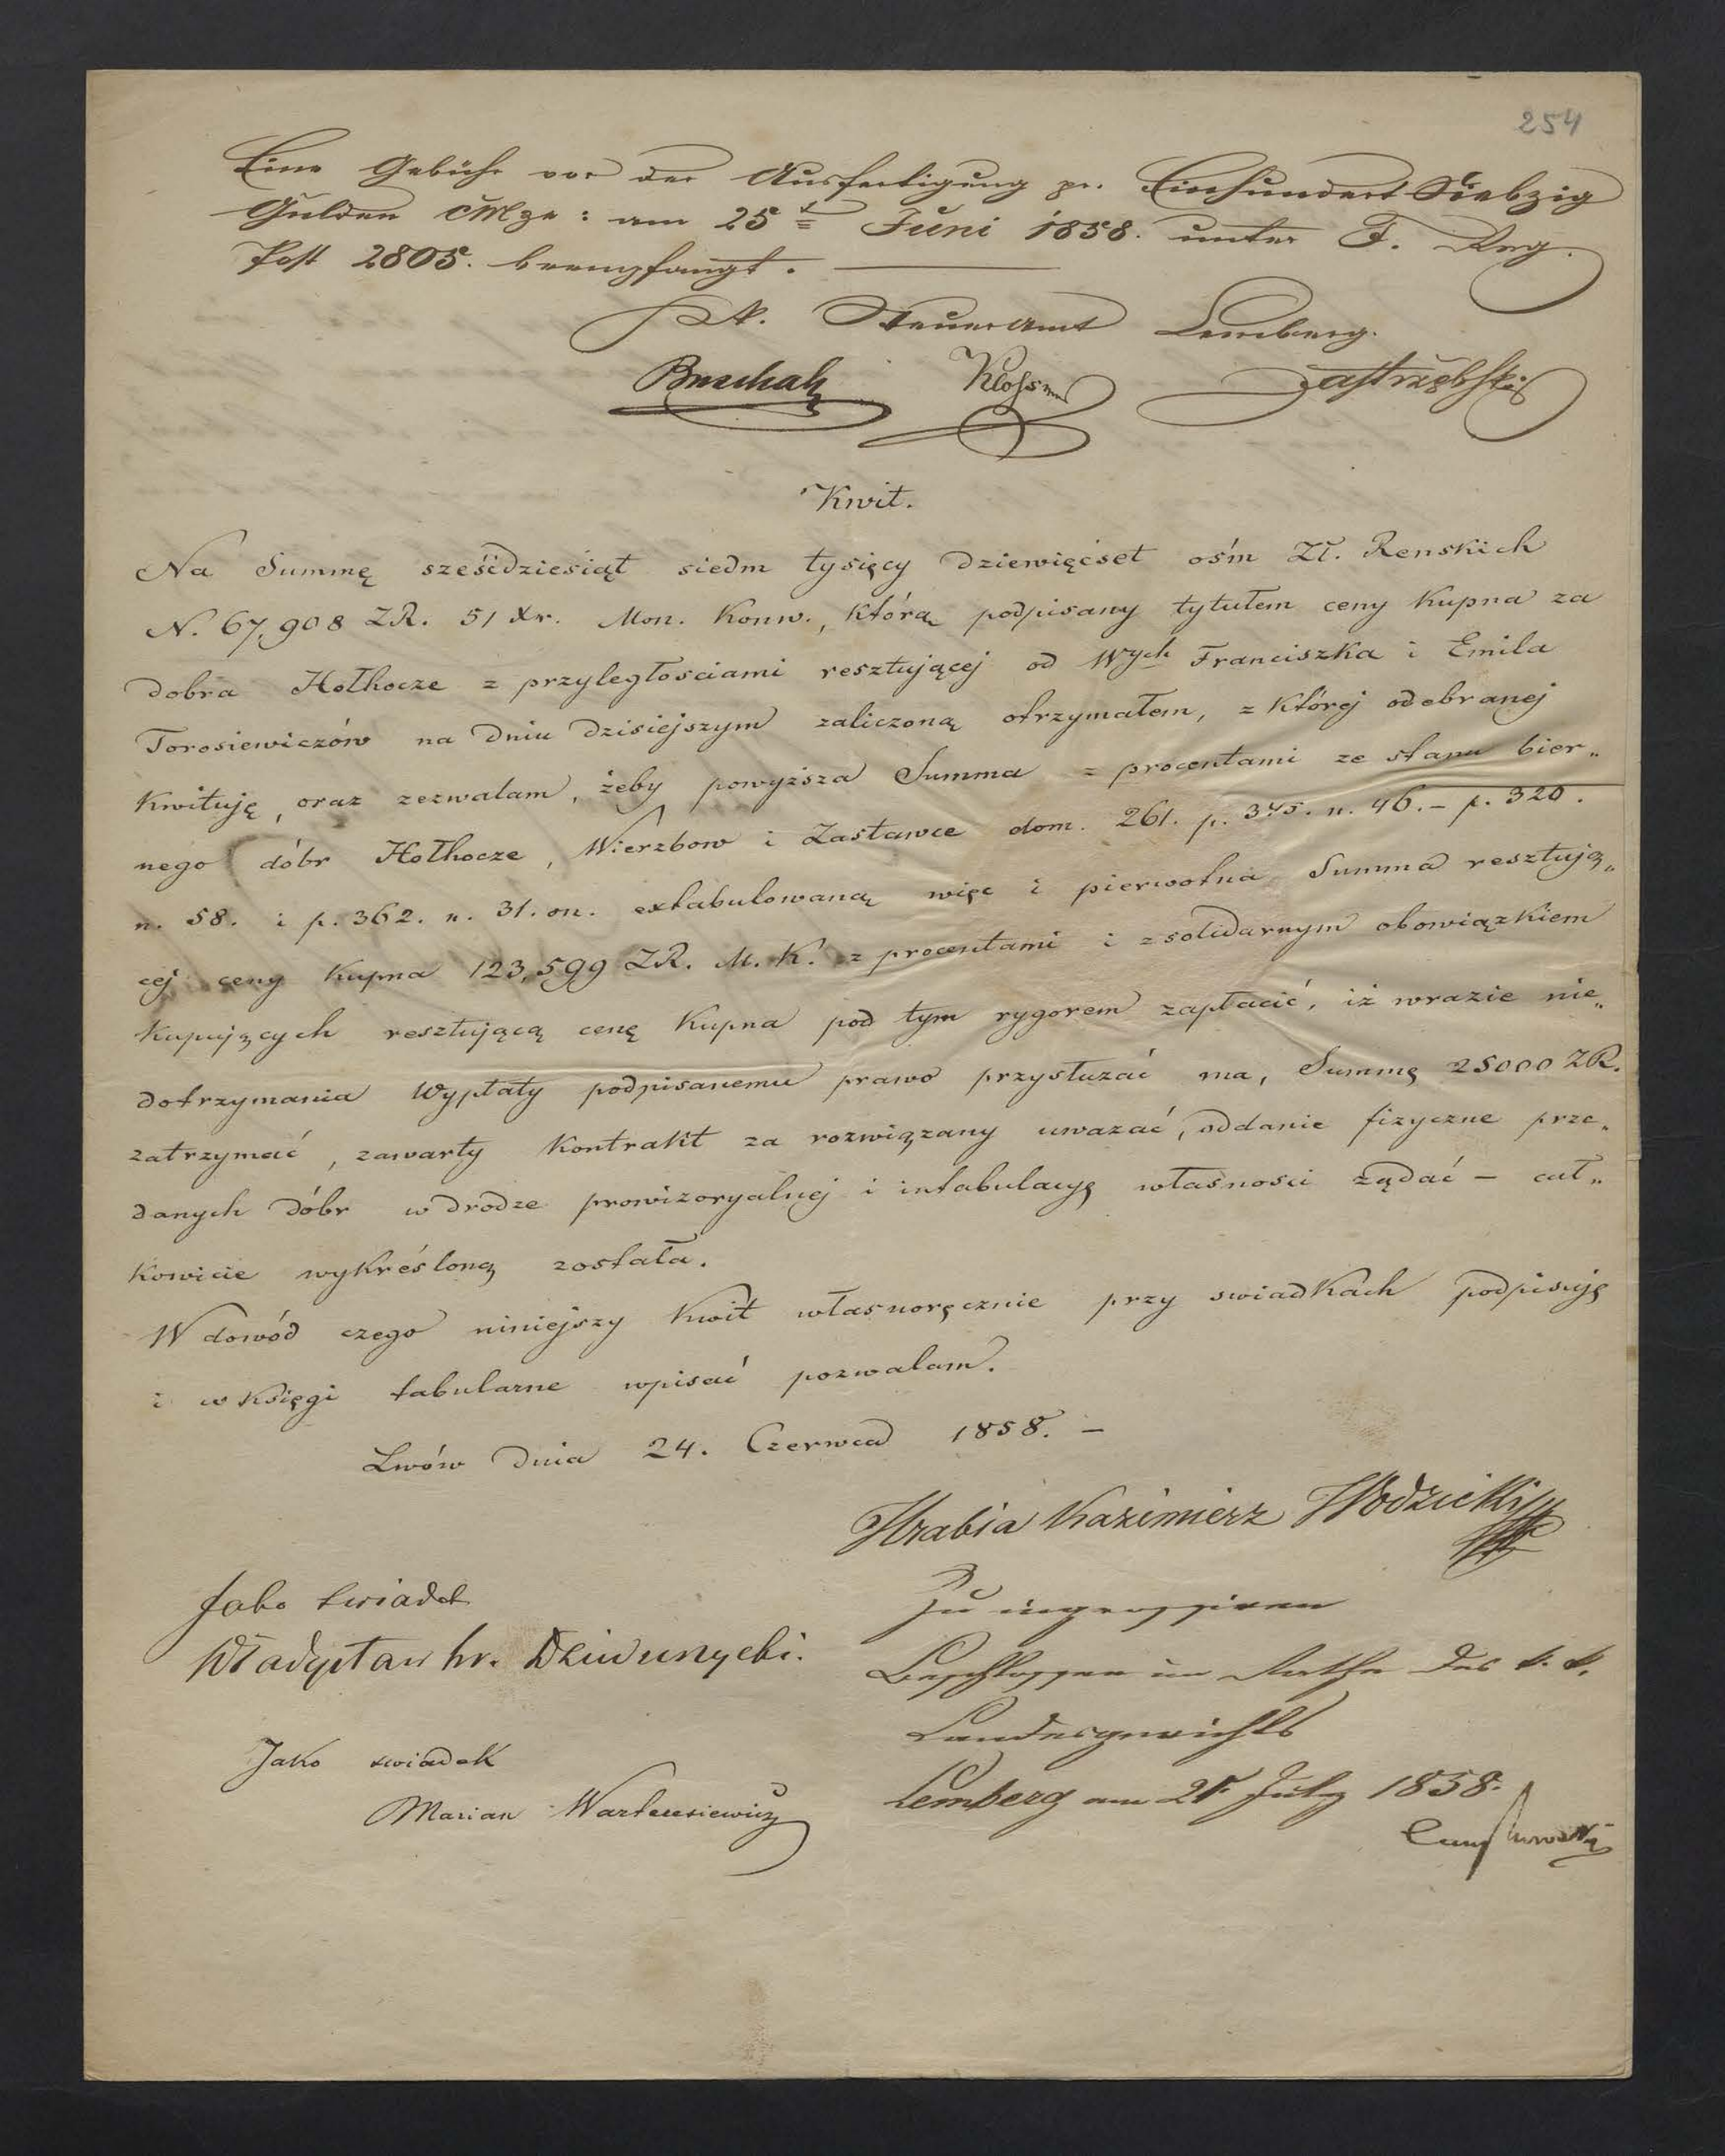 254
Eine Gebühr vor der Ausfertigung pr. Einhundert Siebzig
Gulden CMze: am 25t Juni 1858. unter J. Reg.
Post 2805. beempfangt.
K. K. Steueramt Lemberg.
Jastrzębski
Kwit.
Na Summę sześćdziesiąt siedm tysięcy dziewięćset ośm Zł. Renskich
N. 67,908 ZR. 51 Xr. Mon. Konw., którą podpisany tytułem ceny kupna za
dobra Hołhocze z przyległościami resztującej od Wych Franciszka i Emila
Torosiewiczów na dniu dzisiejszym zaliczoną otrzymałem, z której odebranej
kwituję, oraz zezwalam, żeby powyższa Summa z procentami ze stanu bier„
nego dóbr Hołhocze, Wierzbow i Zastawce dom. 261. p. 375. n. 46. – p. 320.
n. 58. i p. 362. n. 31. on. extabulowaną więc i pierwotna Summa resztują„
cej ceny kupna 123,599 ZR. M. K. z procentami i z solidarnym obowiązkiem
kupujących resztującą cenę kupna pod tym rygorem zapłacić, iż wrazie nie„
dotrzymania wypłaty podpisanemu prawo przysłużać ma, Summę 25000 ZR.
zatrzymać, zawarty kontrakt za rozwiązany uważać, oddanie fizyczne prze„
danych dóbr w drodze prowizoryalnej i intabulacyę własności żądać – cał„
kowicie wykreśloną została.
W dowód czego niniejszy kwit własnoręcznie przy swiadkach podpisuję
i w księgi tabularne wpisać pozwalam.
Lwów dnia 24. Czerwca 1858. –
Hrabia Kazimierz Wodzicki
Jako swiadek
Władysław hr.
Jako swiadek
Marian Warteresiewicz
Zu ingrossiren
Beschlossen im Rathe des k. k.
Landesgerichts
Lemberg am July 1858.